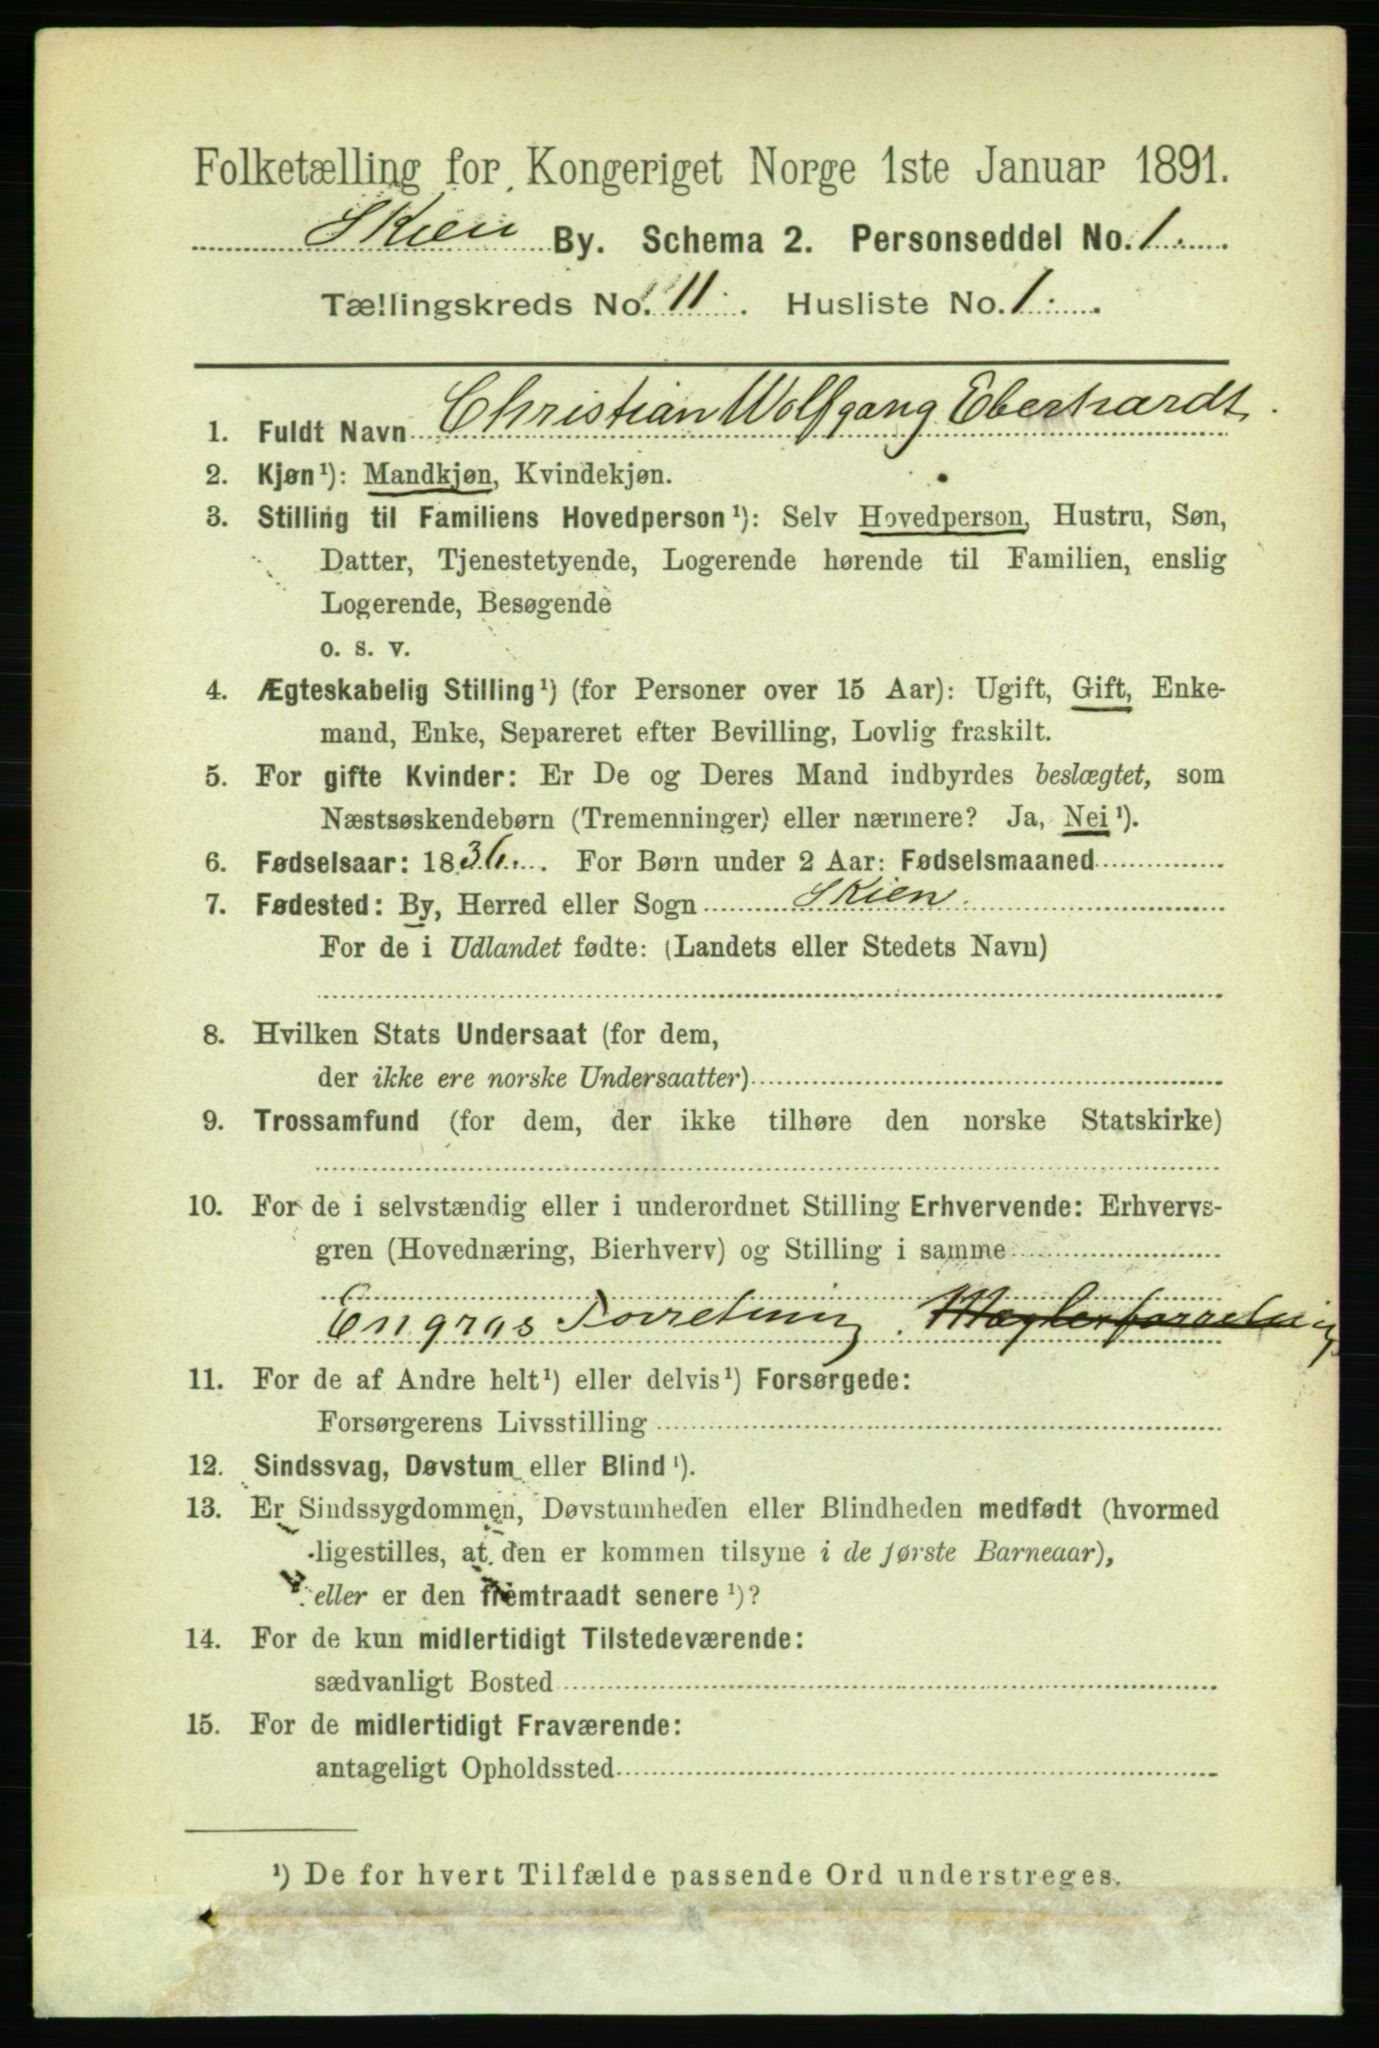 Folketælling for Kongeriget Norge 1ste Januar 1891.
Skien By. Schema 2. Personseddel No. 1.
Tællingskreds No. 11. Husliste No. 1.
1. Fuldt Navn Christian Wolfgang Eberhardt.
2. Kjøn¹): Mandkjøn, Kvindekjøn.
3. Stilling til Familiens Hovedperson¹): Selv Hovedperson, Hustru, Søn,
Datter, Tjenestetyende, Logerende hørende til Familien, enslig
Logerende, Besøgende
o. s. v.
4. Ægteskabelig Stilling¹) (for Personer over 15 Aar): Ugift, Gift, Enke-
mand, Enke, Separeret efter Bevilling, Lovlig fraskilt.
5. For gifte Kvinder: Er De og Deres Mand indbyrdes beslægtet, som
Næstsøskendebørn (Tremenninger) eller nærmere? Ja, Nei¹).
6. Fødselsaar: 1836. For Børn under 2 Aar: Fødselsmaaned
7. Fødested: By, Herred eller Sogn Skien.
For de i Udlandet fødte: (Landets eller Stedets Navn)
8. Hvilken Stats Undersaat (for dem,
der ikke ere norske Undersaatter)
9. Trossamfund (for dem, der ikke tilhøre den norske Statskirke)
10. For de i selvstændig eller i underordnet Stilling Erhvervende: Erhvervs-
gren (Hovednæring, Bierhverv) og Stilling i samme
Engros Forretning. Mæglerforretning
11. For de af Andre helt¹) eller delvis¹) Forsørgede:
Forsørgerens Livsstilling
12. Sindssvag, Døvstum eller Blind¹).
13. Er Sindssygdommen, Døvstumheden eller Blindheden medfødt (hvormed
ligestilles, at den er kommen tilsyne i de første Barneaar),
eller er den fremtraadt senere¹)?
14. For de kun midlertidigt Tilstedeværende:
sædvanligt Bosted
15. For de midlertidigt Fraværende:
antageligt Opholdssted
¹) De for hvert Tilfælde passende Ord understreges.